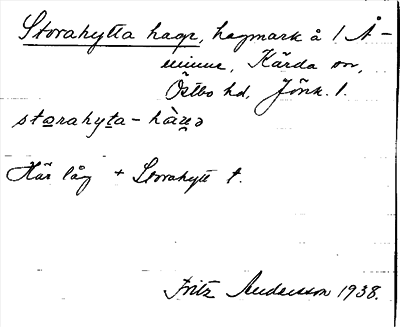 Storahytta hage, hagmark å 1 Å-
minne, Kärda sn,
Östbo hd, Jönk. l.
storahyta - hàgə
Här låg + Storahytt t.
Fritz Andersson 1938.